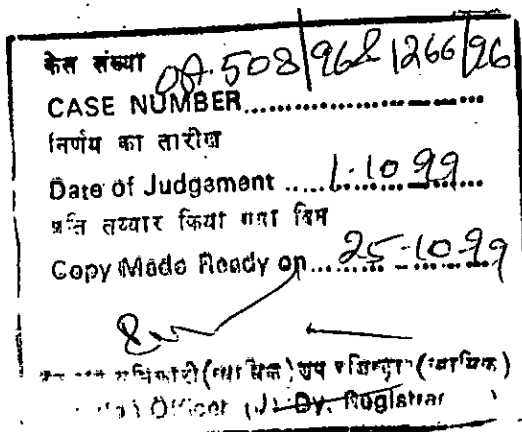 केस संख्या OA. 508/96 & 1266/96
CASE NUMBER
निर्णय का तारीख
Date of Judgement ..... 1.10.99
प्रति तय्यार किया गया दिन
Copy Made Ready on ... 25-10-99
अधिकारी (न्यायिक) उप रजिस्ट्रार (न्यायिक)
Officer (J) Dy. Registrar